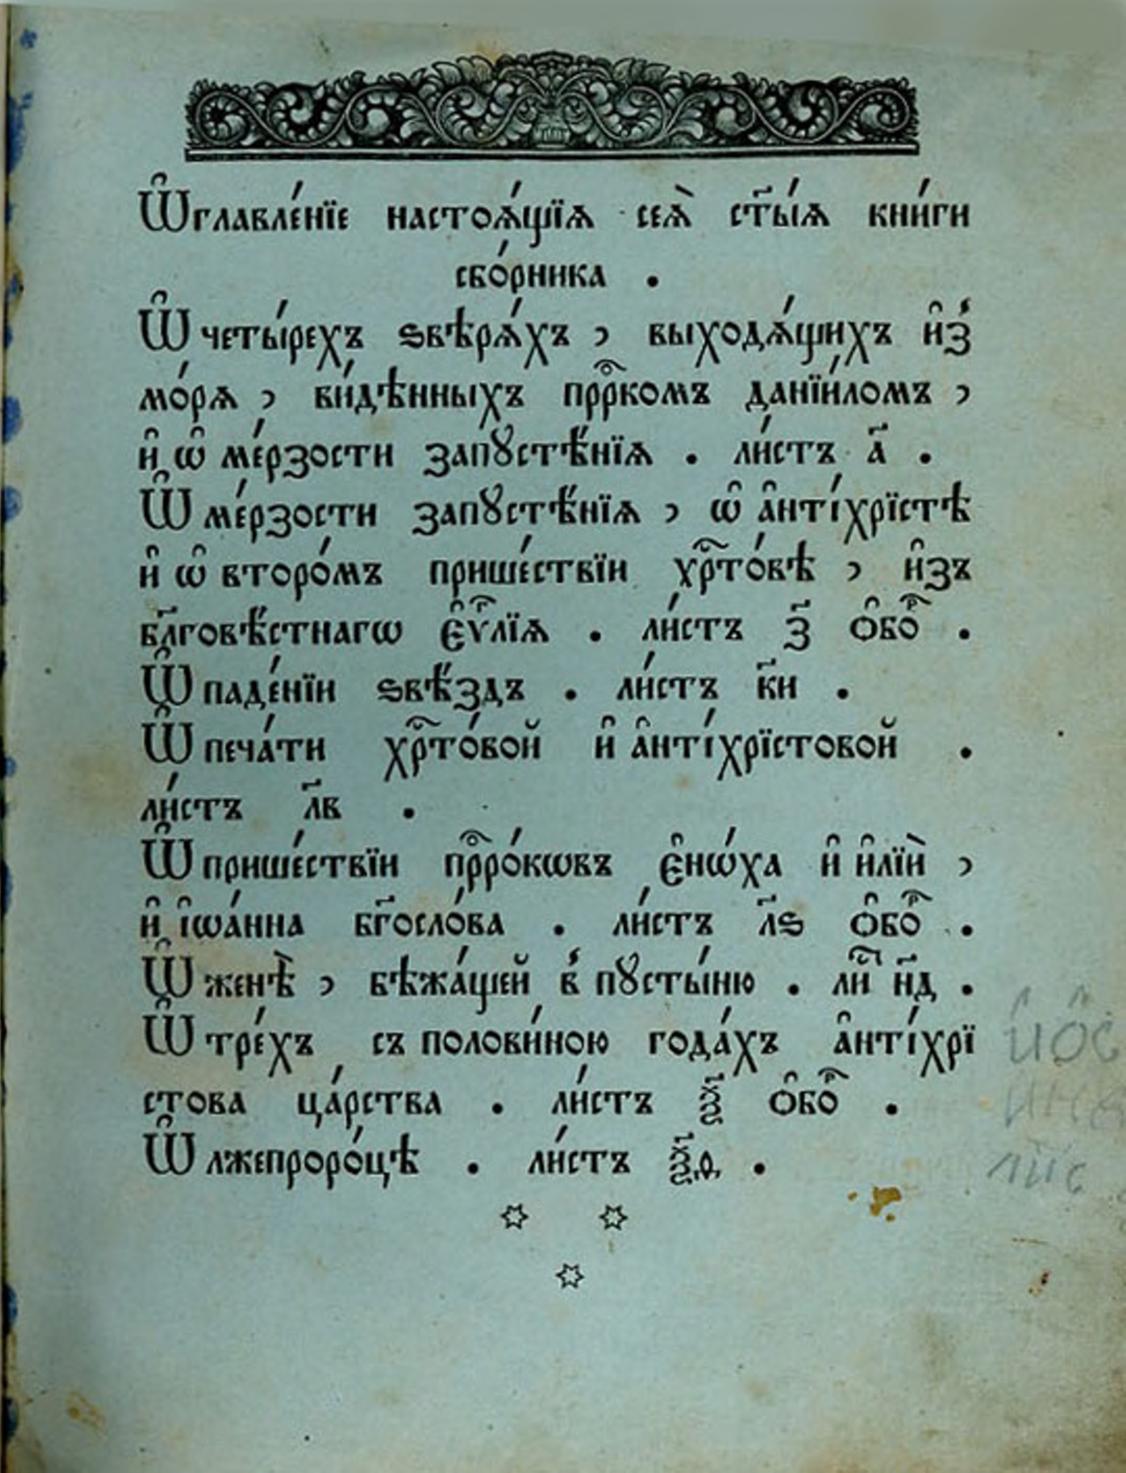 Ѡ҆главле́нїе настоѧ́щїѧ сеѧ̀ ст҃ы́ѧ кни́ги
сбо́рника .
Ѡ҆ четы́рехъ ѕвѣрѧ́хъ , выходѧ́щихъ и҆з̾
мо́рѧ , ви́дѣнныхъ прⷪ҇ркомъ данїи́ломъ ,
и҆ ѡ҆ ме́рзости запꙋстѣ́нїѧ . ли́стъ а҃ .
Ѡ҆ ме́рзости запꙋстѣ́нїѧ , ѡ҆ а҆нті́хрїстѣ
и҆ ѡ҆ второ́мъ прише́ствїи хрⷭ҇то́вѣ , и҆зъ
бл҃говѣ́стнагѡ є҆ѵⷢ҇лїѧ . ли́стъ з҃ ѻ҆боⷬ҇ .
Ѡ҆ паде́нїи ѕвѣ́здъ . ли́стъ к҃и .
Ѡ҆ печа́ти хрⷭ҇то́вой и҆ а҆нті́хрїстовой .
ли́стъ л҃в .
Ѡ҆ прише́ствїи прⷪ҇ро́кѡвъ є҆нѡ́ха и҆ и҆лїѝ ,
и҆ і҆ѡа́нна бг҃осло́ва . ли́стъ л҃ѕ ѻ҆боⷬ҇ .
Ѡ҆ женѣ̀ , бѣжа́щей в̾ пꙋсты́ню . лиⷭ҇ н҃д .
Ѡ҆ тре́хъ съ полови́ною года́хъ а҆нті́хрї
стова ца́рства . ли́стъ ѯ҃ ѻ҆боⷬ҇ .
Ѡ҆ лжепроро́цѣ . ли́стъ ѯ҃ѳ .